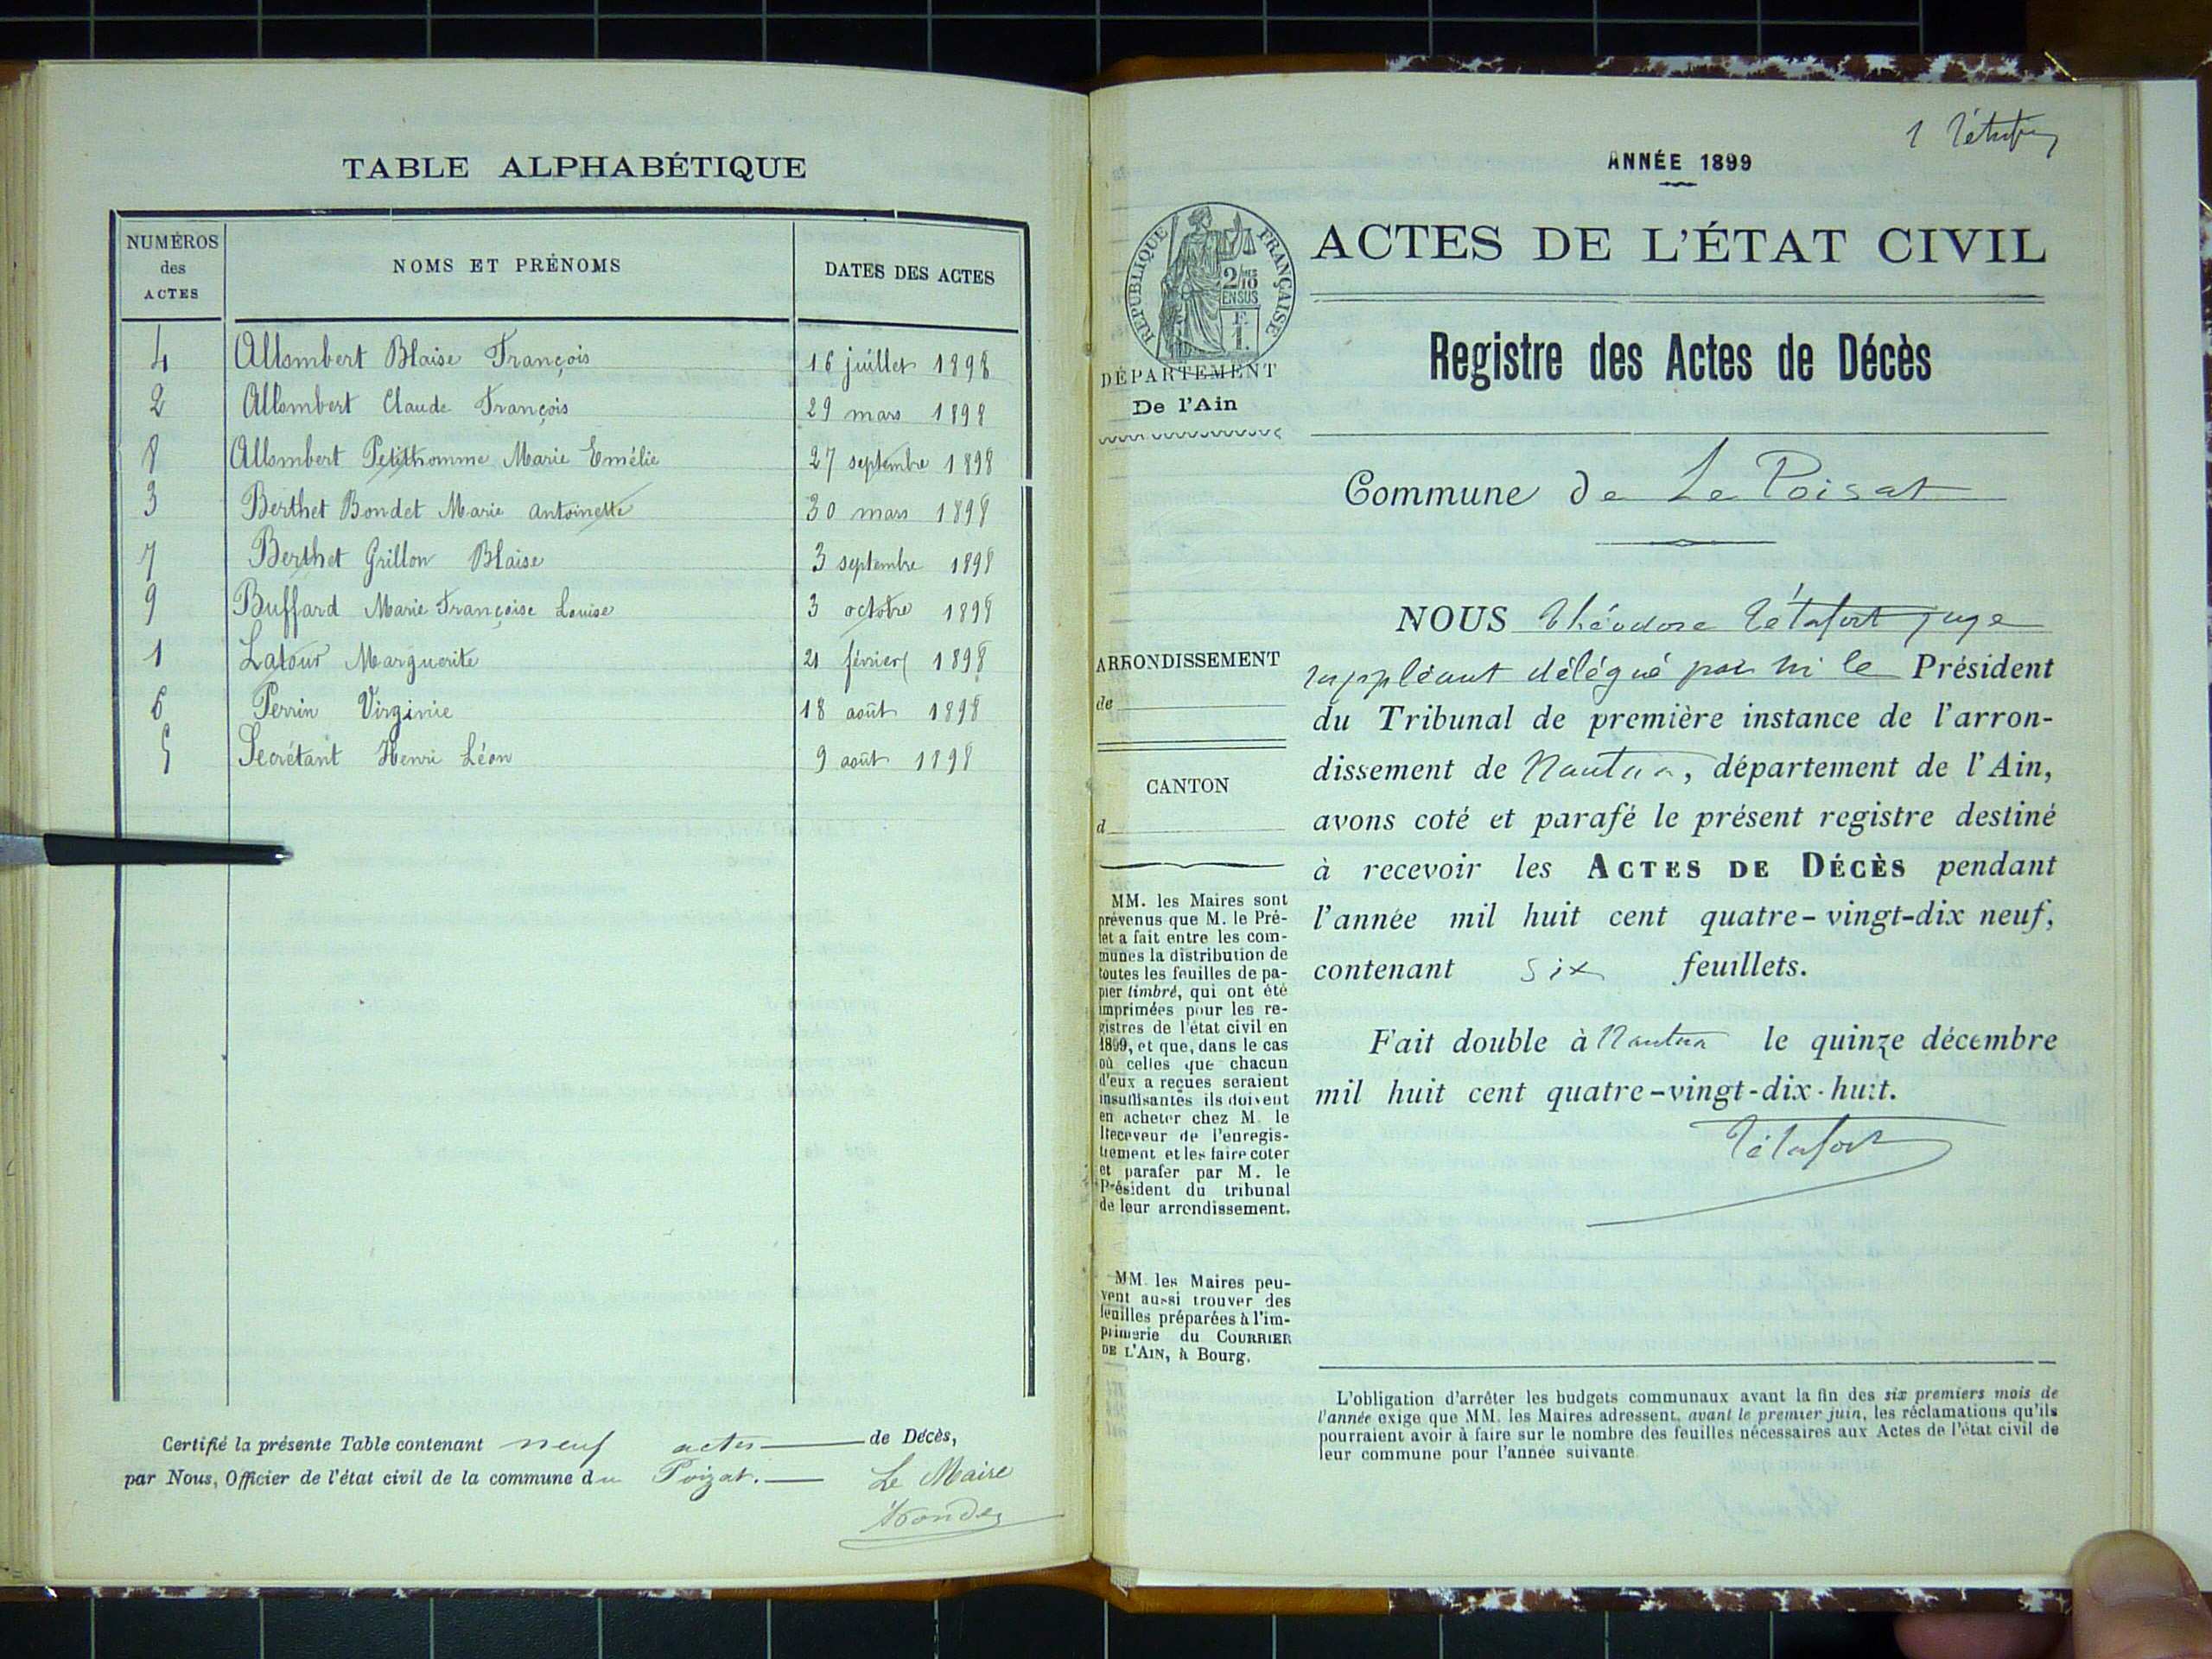 TABLE ALPHABÉTIQUE
NUMÉROS des ACTES NOMS ET PRÉNOMS DATES DES ACTES
4 Allombert Blaise François 16 juillet 1898
2 Allombert Claude François 29 mars 1898
8 Allombert Petithomme Marie Emélie 27 septembre 1898
3 Berthet Bondet Marie Antoinette 30 mars 1898
7 Berthet Grillon Blaise 3 septembre 1898
9 Buffard Marie Françoise Louise 3 octobre 1898
1 Latour Marguerite 21 février 1898
6 Perrin Virginie 18 août 1898
5 Secrétant Henri Léon 9 août 1898
Certifié la présente Table contenant neuf actes de Décès,
par Nous, Officier de l'état civil de la commune du Poizat.
Le Maire
1
ANNÉE 1899
RÉPUBLIQUE FRANÇAISE
2/10 EN SUS
F. 1.
DÉPARTEMENT
De l'Ain
ARRONDISSEMENT
de
CANTON
d
MM. les Maires sont
prévenus que M. le Pré-
fet a fait entre les com-
munes la distribution de
toutes les feuilles de pa-
pier timbré, qui ont été
imprimées pour les re-
gistres de l'état civil en
1899, et que, dans le cas
où celles que chacun
d'eux a reçues seraient
insuffisantes ils doivent
en acheter chez M. le
Receveur de l'enregis-
trement et les faire coter
et parafer par M. le
Président du tribunal
de leur arrondissement.
MM. les Maires peu-
vent aussi trouver des
feuilles préparées à l'im-
primerie du COURRIER
DE L'AIN, à Bourg.
ACTES DE L'ÉTAT CIVIL
Registre des Actes de Décès
Commune de Le Poisat
NOUS Théodore Tétafort juge
suppléant délégué par Mr le Président
du Tribunal de première instance de l'arron-
dissement de Nantua, département de l'Ain,
avons coté et parafé le présent registre destiné
à recevoir les ACTES DE DÉCÈS pendant
l'année mil huit cent quatre-vingt-dix neuf,
contenant six feuillets.
Fait double à Nantua le quinze décembre
mil huit cent quatre-vingt-dix-huit.
Tétafort
L'obligation d'arrêter les budgets communaux avant la fin des six premiers mois de
l'année exige que MM. les Maires adressent, avant le premier juin, les réclamations qu'ils
pourraient avoir à faire sur le nombre des feuilles nécessaires aux Actes de l'état civil de
leur commune pour l'année suivante.